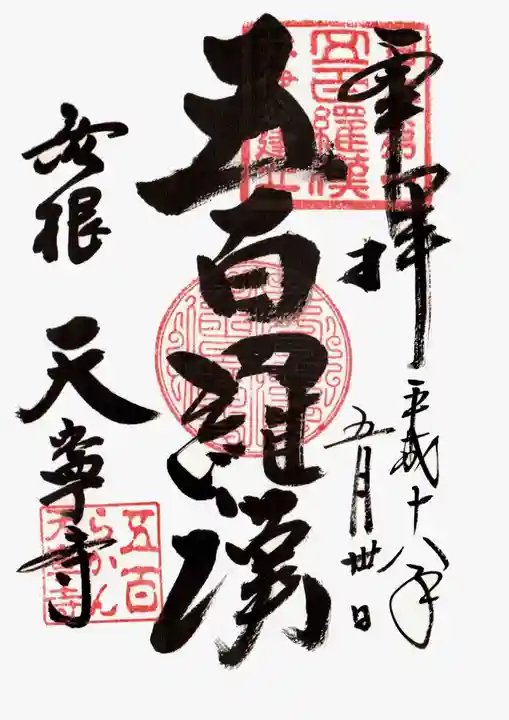 奉拝
平成十八年
五月卅日
五百羅漢
彦根
天寧寺
五百羅漢
五百
らかん
天寧寺